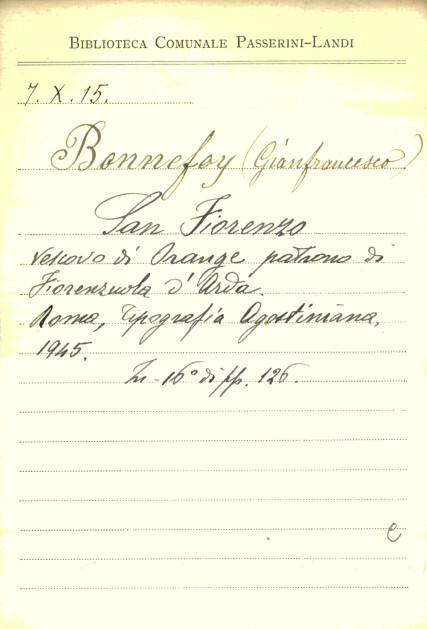 BIBLIOTECA COMUNALE PASSERINI-LANDI
7. X. 15.
Bonnefoy (Gianfrancesco)
San Fiorenzo
Vescovo di Orange patrono di
Fiorenzuola d'Arda.
Roma, Tipografia Agostiniana,
1945.
In-16° di pp. 126.
e